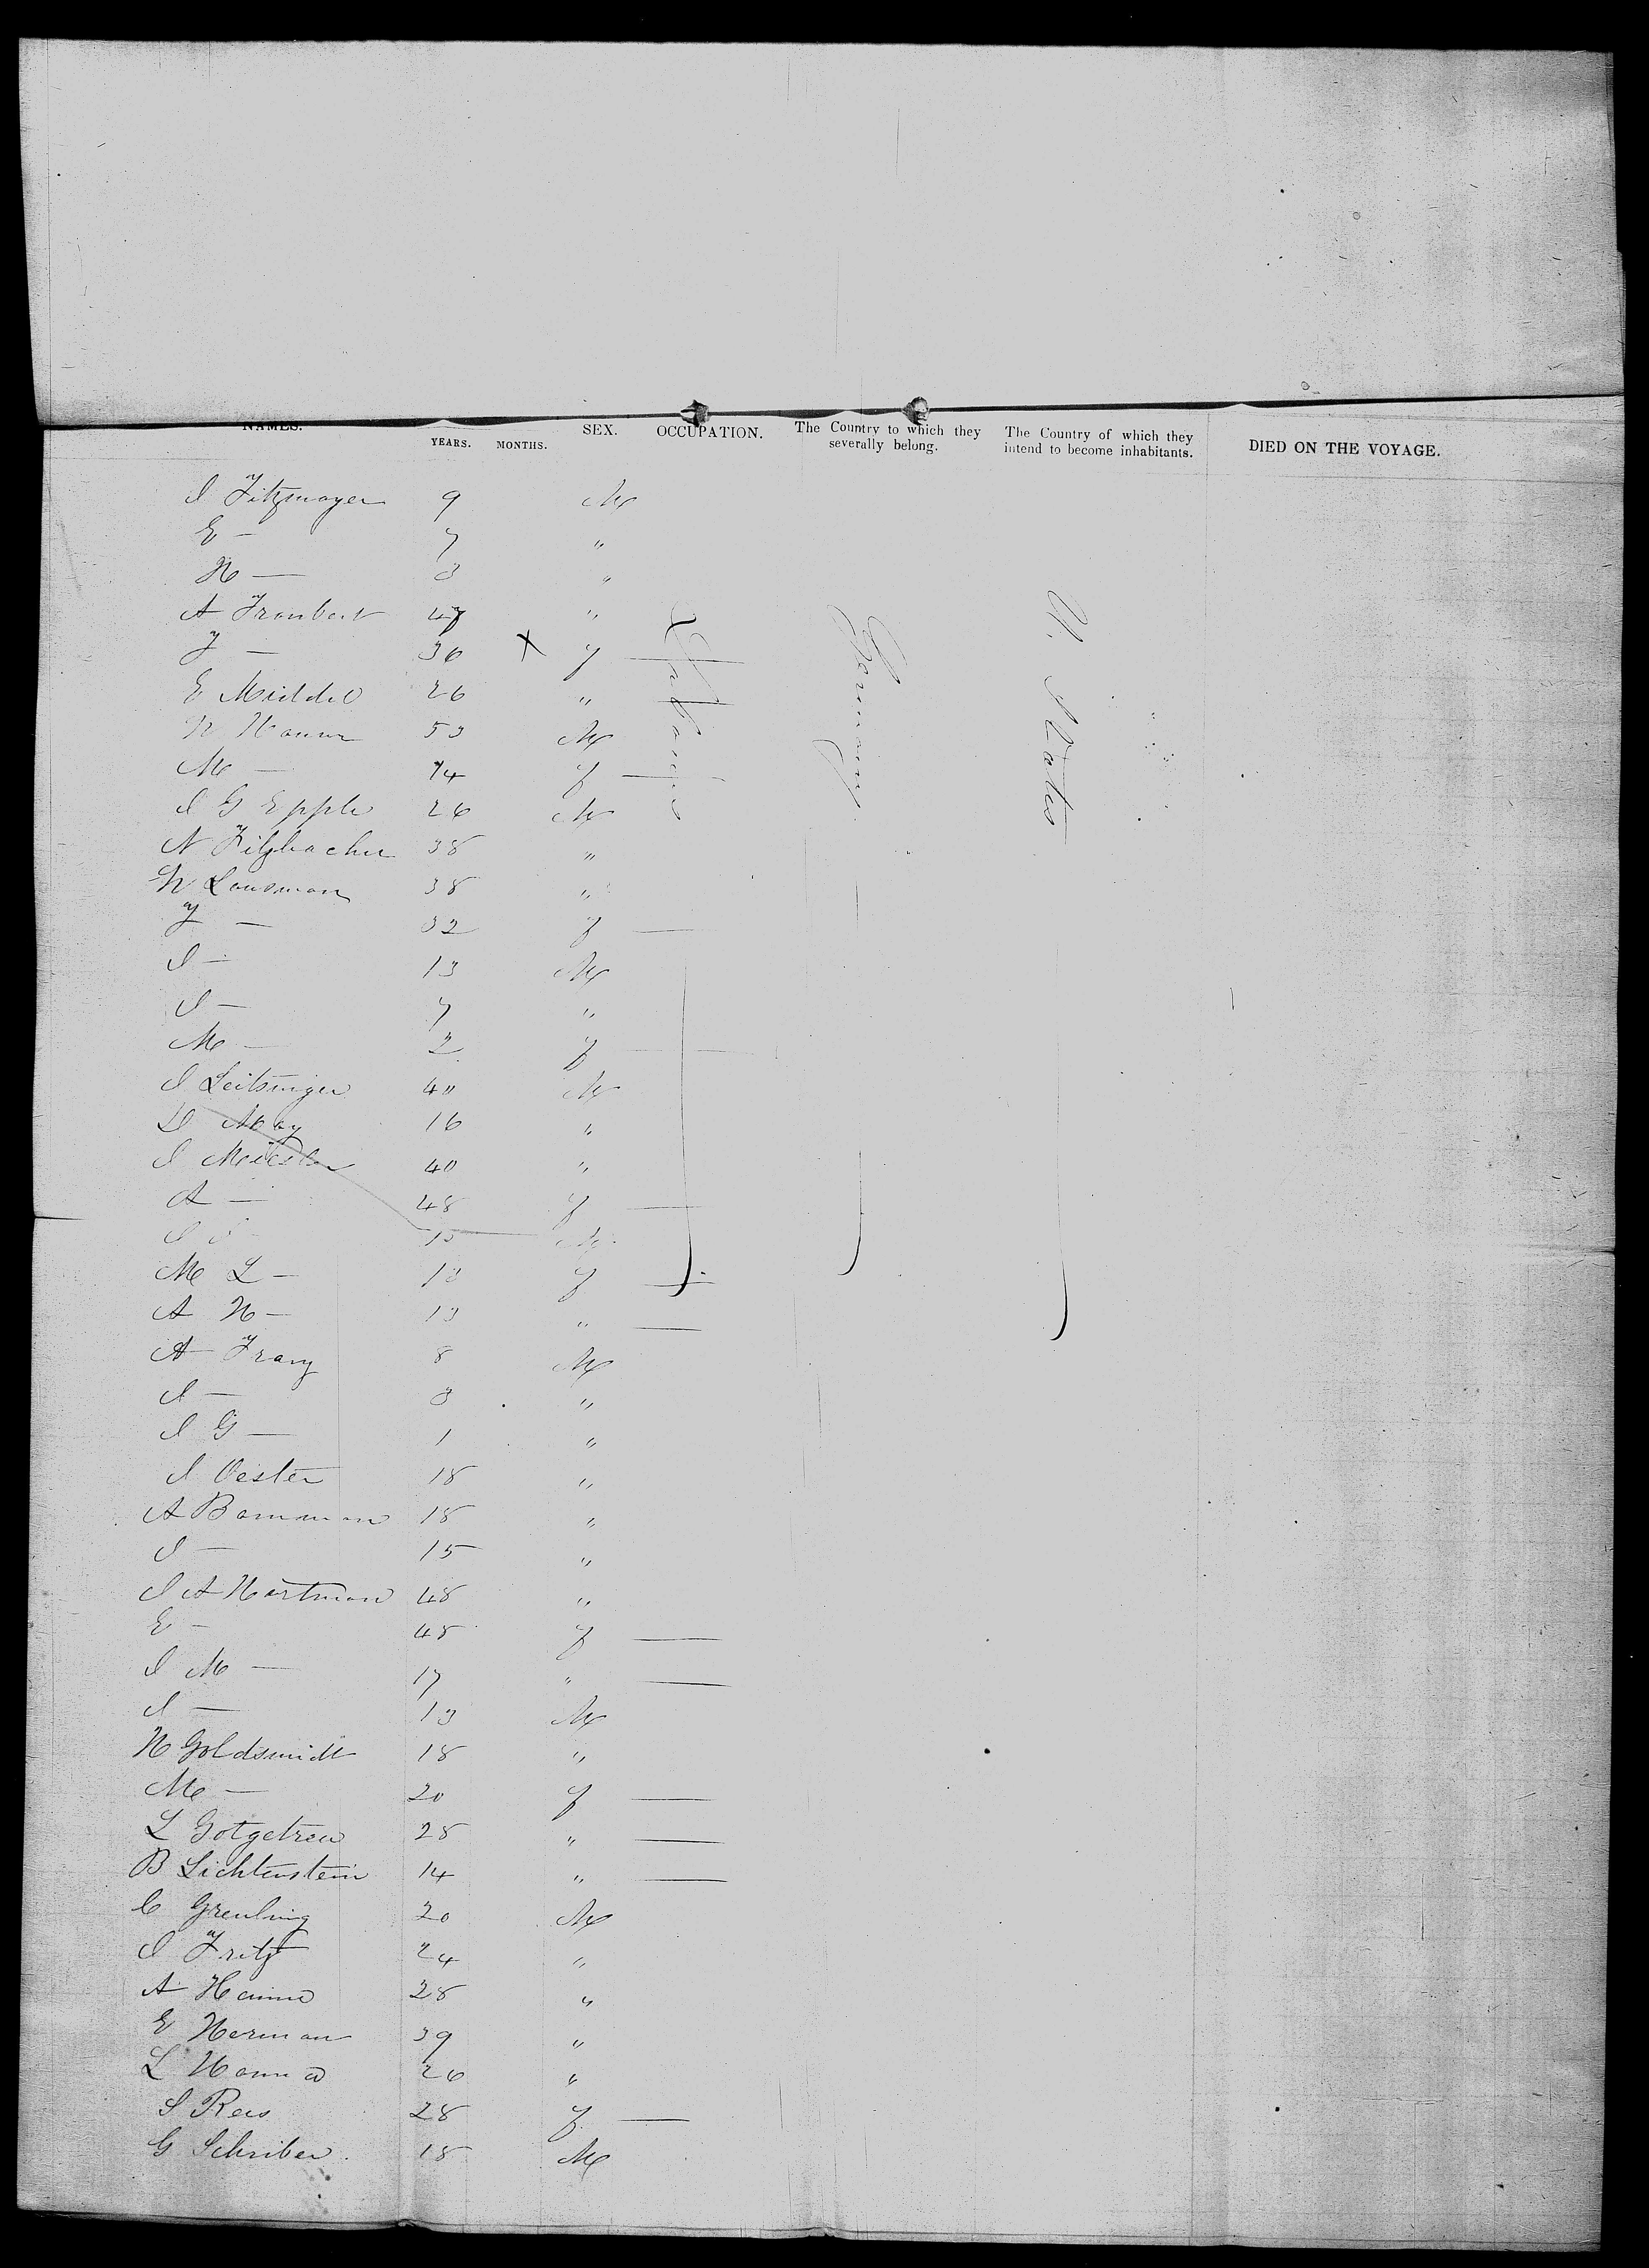 NAMES. YEARS. MONTHS. SEX. OCCUPATION. The Country to which they severally belong. The Country of which they intend to become inhabitants. DIED ON THE VOYAGE.
I Fitzmayer 9 M
E — 7 "
H — 3 "
A Fraubert 47 "
F — 36 X f —
E Middel 26 " —
H Hanna 53 M
M — 14 f —
I G Epple 26 M
N Fitzbacher 38 "
W Lausman 38 "
F — 32 f —
I — 13 M
I — 7 "
M — 2 f —
I Leitsinger 40 M
D May 16 "
I Meister 40 "
A — 48 f —
I I — 15 M
M L — 18 f —
A H — 13 " —
A Franz 8 M
I — 3 "
I G — 1 "
I Oester 18 "
A Bammann 18 "
I — 15 "
I A Hartman 48 "
E — 48 f —
I M — 17 " —
I — 13 M
H Goldsmidt 18 "
M — 20 f —
L Gotgetreu 28 " —
B Lichtenstein 14 " —
C Greuling 20 M
I Fritz 24 "
A Hanna 28 "
E Herman 39 "
L Hanna 26 "
S Reis 28 f —
G Schriber 18 M
Labourer
Germany
U. States